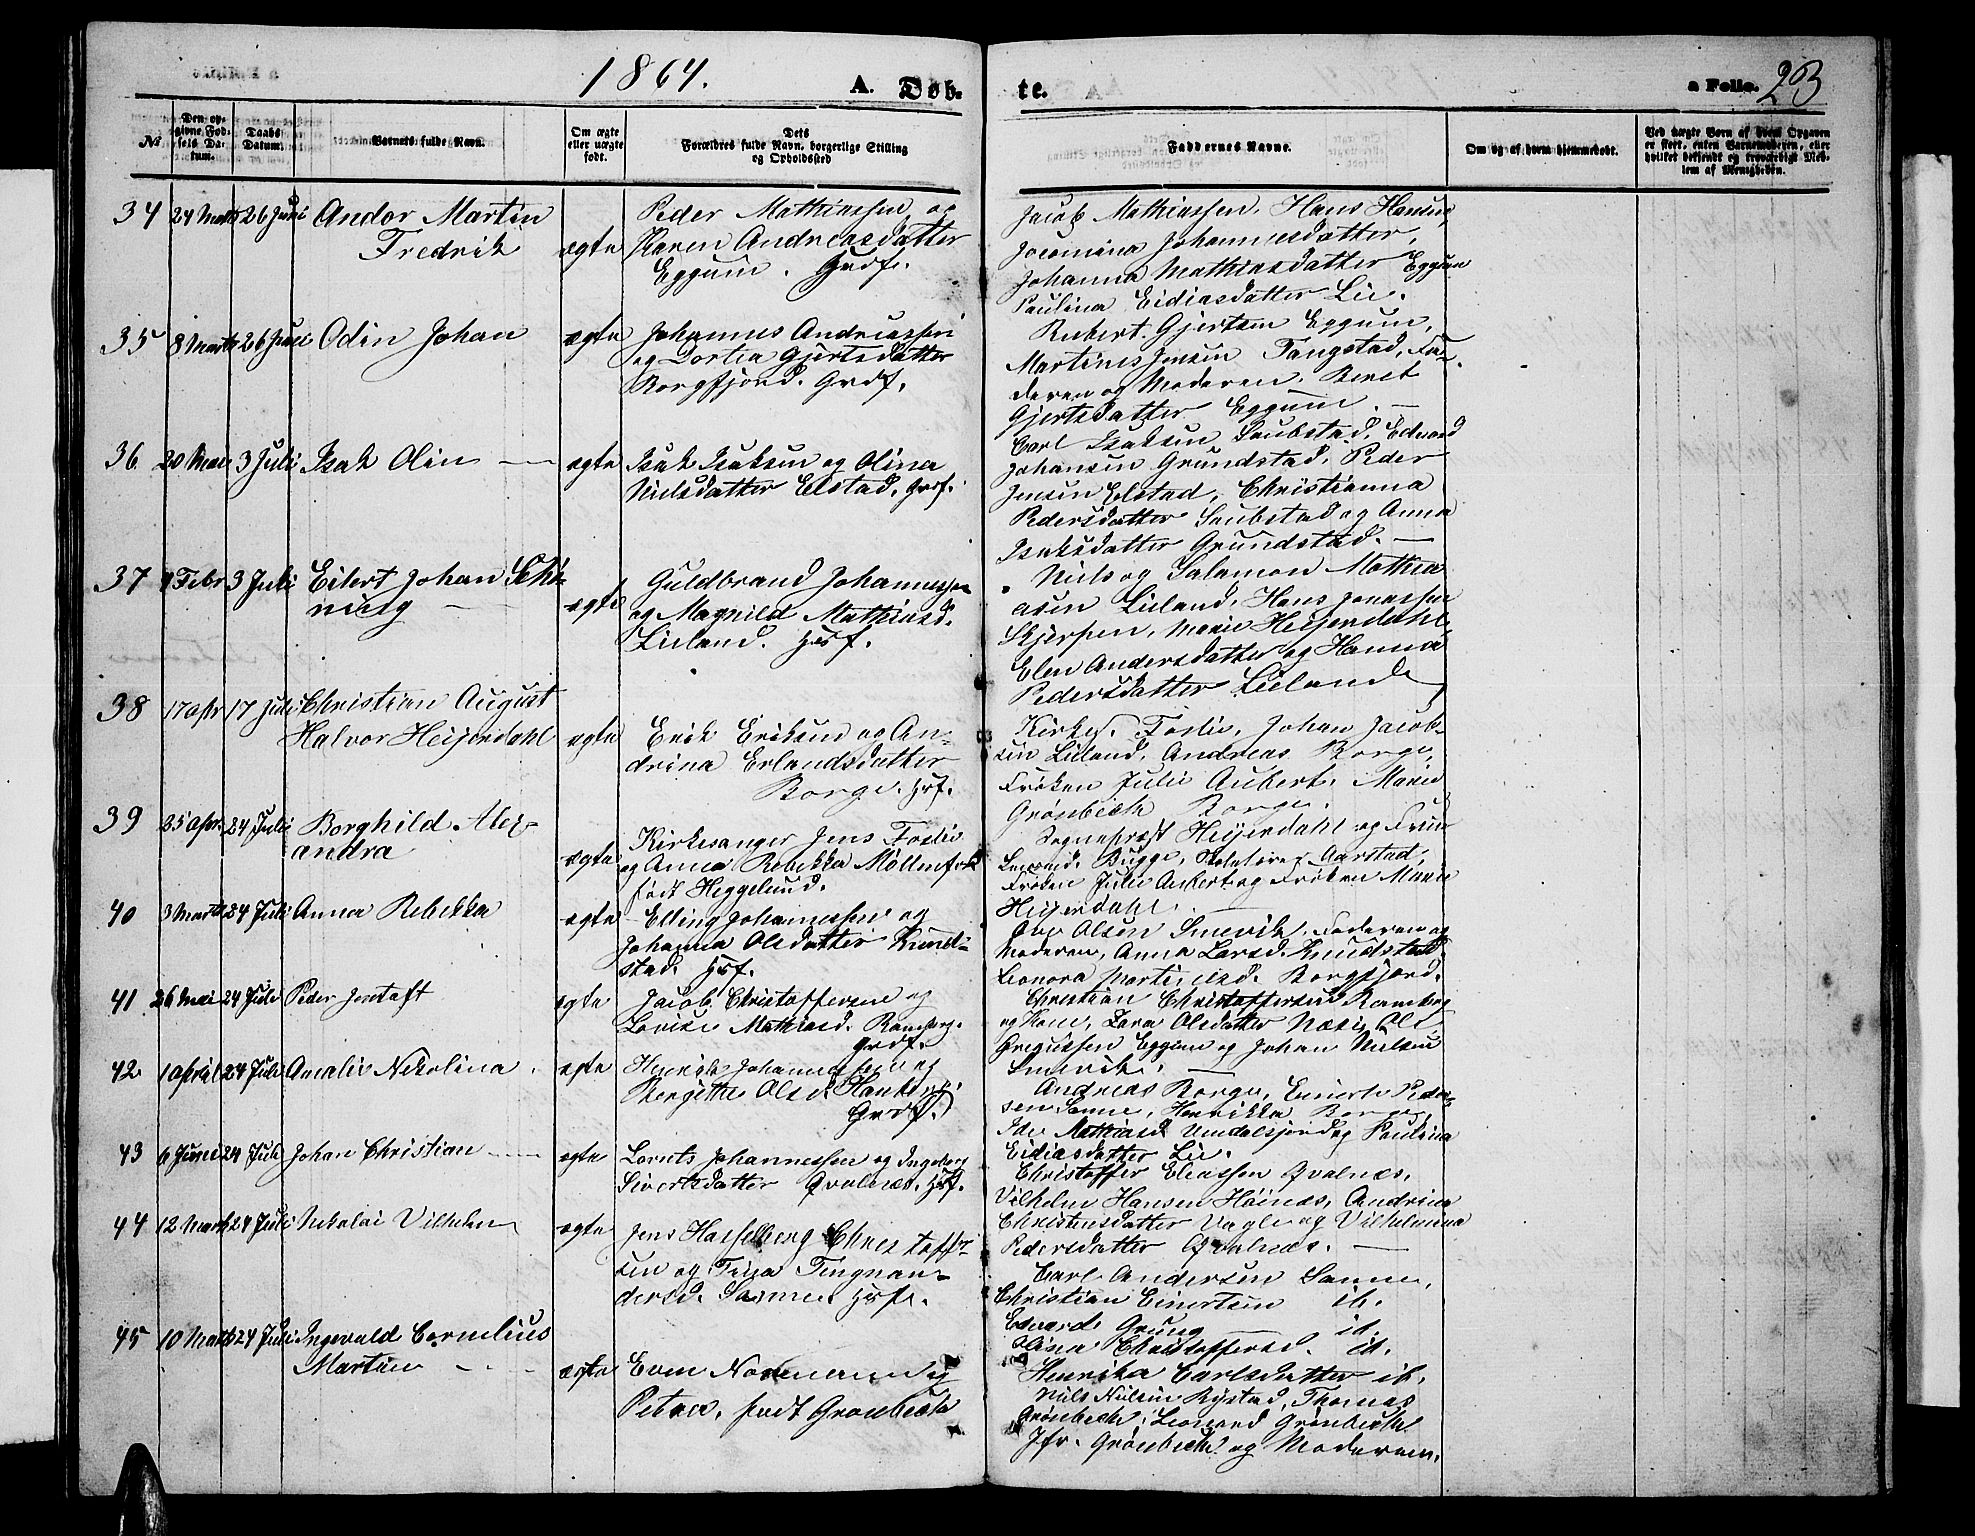 1864.
A. Døb-
te.
a Folio. 23
№
Den opgivne Fødsels Datum.
Daabs Datum.
Barnets fulde Navn.
Om ægte eller uægte født.
Dets Forældres fulde Navn, borgerlige Stilling og Opholdssted
Faddernes Navne.
Om og af hvem hjemmedøbt.
Ved uægte Børn af hvem Opgaven er skeet, enten Barnemoderen, eller hvilket bekjendt og troværdigt Medlem af Menigheden.
34 24 Marts 26 Juni Andor Martin
Fredrik
ægte
Peder Mathiassen og
Karen Andreasdatter
Eggum. Grdf.
Jacob Mathiassen, Hans Hansen,
Jocomina Johannesdatter,
Johanna Mathiasdatter Eggum
Paulina Eidiasdatter Lie.
35 8 Marts 26 Juni Odin Johan
ægte
Johannes Andreassen
og Dortea Gjertsdatter
Borgfjord. Grdf.
Rubert Gjertsen Eggum,
Martines Jensen Tangstad, Fa-
deren og Moderen, Beret
Gjertsdatter Eggum. —
36. 20 Mai 3 Juli Isak Olin —
ægte
Isak Isaksen og Olina
Nielsdatter Elstad, Grdf.
Carl Isaksen Saubstad, Edvard
Johansen Grundstad, Peder
Jensen Elstad, Christianna
Pedersdatter Saubstad og Anna
Isaksdatter Grundstad. —
37 4 Febr 3 Juli Eilert Johan Schø-
ning —
ægte
Guldbrand Johannessen
og Magnild Mathiasd.
Lieland. Hsf.
Niels og Salamon Mathia
asen Lieland, Hans Jonassen
Skjerpen, Marie Heijerdahl,
Elen Andersdatter og Hanna
Pedersdatter Lieland
38 17 Apr 17 Juli Christian August
Halvor Heijerdahl
ægte
Erik Eriksen og An-
drina Erlandsdatter
Borge. Hsf.
Kirkes. Foslie, Johan Jacob-
sen Lieland, Andreas Borge,
Frøken Julie Aubert, Marie
Grönbech Borge.
39 25 Apr. 24 Juli Borghild Alex-
andra
ægte
Kirkesanger Jens Foslie
og Anna Rebekka Möllerfosk
født Heggelund.
Sognepræst Heijerdahl og Frue
Bugge, Aarstad,
Frøken Julie Aubert og Frøken Marie
Heijerdahl. —
40 3 Marts 24 Juli Anna Rebekka
ægte
Elling Johannessen og
Johanna Olsdatter Knud-
stad. Hsf.
Olsen Smevik, Faderen og
Moderen, Anna Larsd. Knudstad
Leonora Martinusd. Borgfjord.
41 26 Mai 24 Juli Peder Jentoft
ægte
Jacob Christoffersen og
Lovise Mathiasd. Ramberg.
Grdf.
Christian Christoffersen Ramberg
og Kone, Lara Olsdatter Næsie, Ole
Gregussen Eggum og Johan Nielsen
Smevik.
42 1 April 24 Juli Amalie Nikolina.
ægte
Henrik Johannessen og
Bergitthe Olsd.
Grdf.
Andreas Borge, Einert Peder-
sen Sanne, Henrikka Borge,
Ida Mathiasd. og Paulina
Eidiasdatter Lie.
43 6 Juni 24 Juli Johan Christian —
ægte
Lornts Johannessen og Ingeborg
Sivertsdatter Qvalnæs. Hsf.
Christoffer Eliassen Qvalnæs,
Vilhelm Hansen Höinæs, Andrina
Christensdatter Vagle og Vilhelmina
Pedersdatter Qvalnæs. —
44 12 Marts 24 Juli Nikolai Vilhelm
ægte
Jens Hasselberg Christoff-
sen og Trina Tingnan-
dersd. Sanne. Hsf.
Carl Andersen Sanne,
Christian Einertsen ib.
Edvard Grung — ib.
Olina Christoffersd. ib.
Henrika Carlsdatter ib.
45 10 Marts 24 Juli Ingevald Cornelius
Martin —
ægte
Even Normann og
Petra, født Gronbech
Nils Nielsen Rystad, Thomas
Grönbech, Leonard Grönbech
Jfr. Grönbech og Moderen.